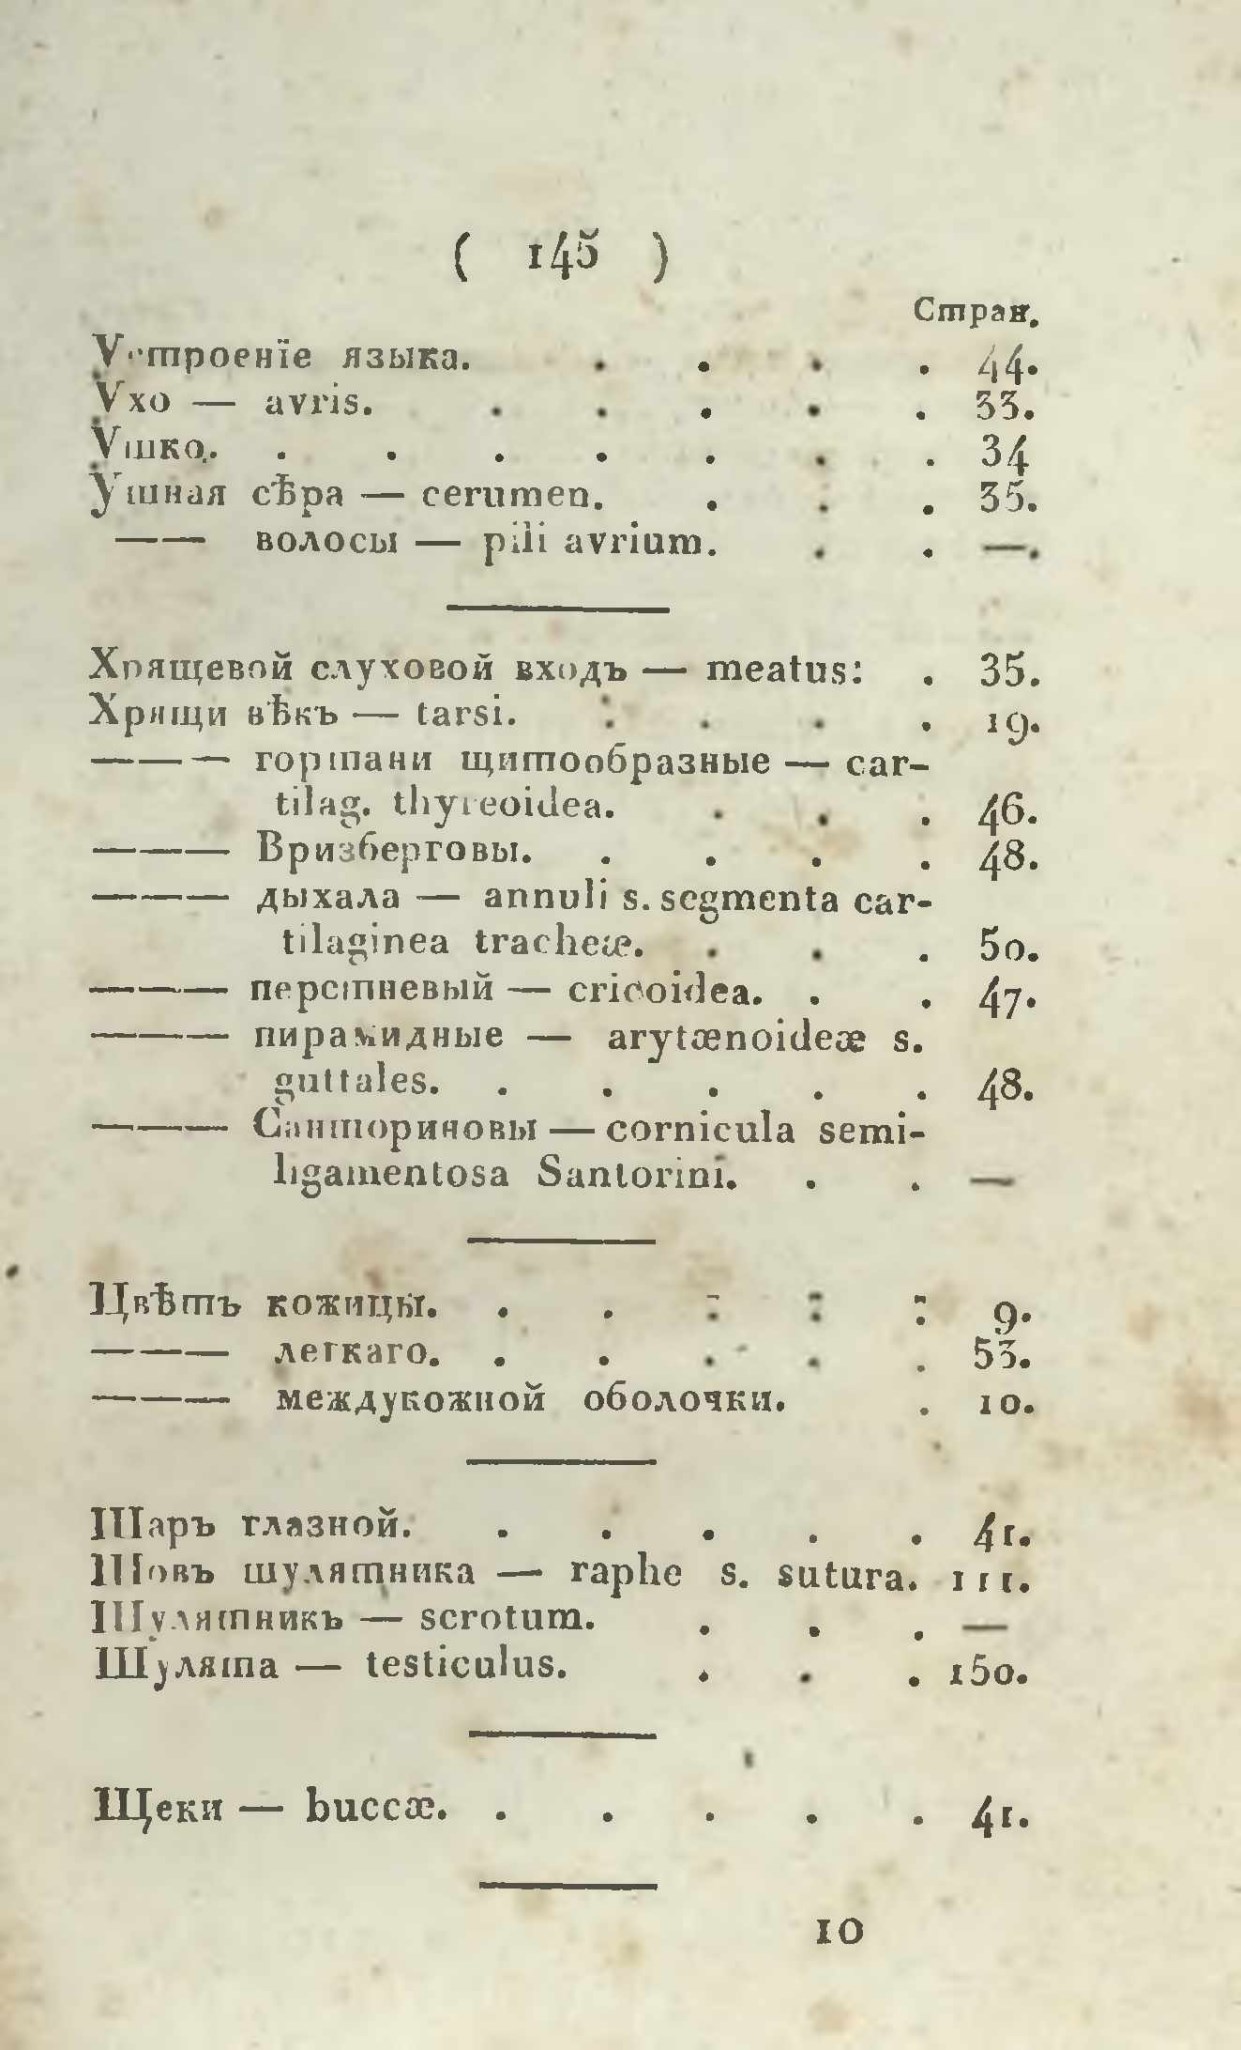 ( 145 )
Стран.
Устроенїе языка. . . . . 44.
Ухо — avris. . . . . . 33.
Ушко. . . . . . . . 34
Ушная сѣра — cerumen. . . . 35.
—— волосы — pili avrium. . . —.
Хрящевой слуховой входъ — meatus: . 35.
Хрящи вѣкъ — tarsi. . . . . 19.
——— гортани щитообразные — car-
tilag. thyreoidea. . . . 46.
——— Вризберговы. . . . . 48.
——— дыхала — annuli s. segmenta car-
tilaginea tracheæ. . . . 50.
——— перстневый — cricoidea. . . 47.
——— пирамидные — arytænoideæ s.
guttales. . . . . . 48.
——— Санториновы — cornicula semi-
ligamentosa Santorini. . . —
Цвѣтъ кожицы. . . . . . 9.
——— легкаго. . . . . . 53.
——— междукожной оболочки. . 10.
Шаръ глазной. . . . . . 41.
Шовъ шулятника — raphe s. sutura. 111.
Шулятникъ — scrotum. . . . —
Шулята — testiculus. . . . 150.
Щеки — buccæ. . . . . . 41.
10